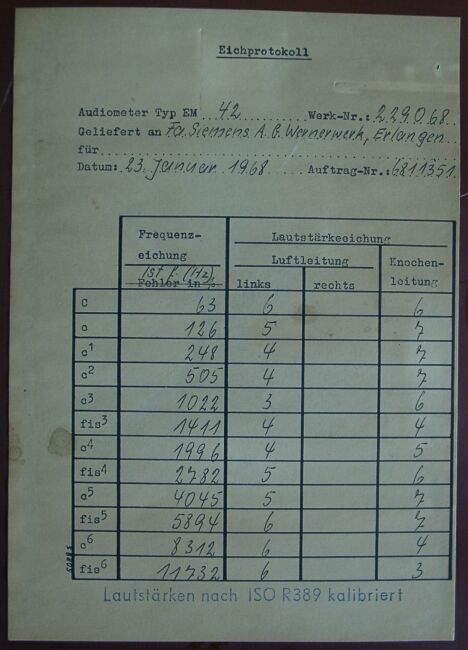 Eichprotokoll
Audiometer Typ EM 42 Werk-Nr.: 229068
Geliefert an Fa. Siemens A.G. Wernerwerk, Erlangen
für
Datum: 23. Januar 1968 Auftrag-Nr.: 6811351
Frequenz-
eichung
Ist f. (Hz)
Fehler in %
Lautstärkeeichung
Luftleitung
links rechts
Knochen-
leitung
C 63 6 6
c 126 5 7
c1 248 4 7
c2 505 4 7
c3 1022 3 6
fis3 1411 4 4
c4 1996 4 5
fis4 2782 5 6
c5 4045 5 7
fis5 5894 6 7
c6 8312 6 4
fis6 11732 6 3
Lautstärken nach ISO R389 kalibriert